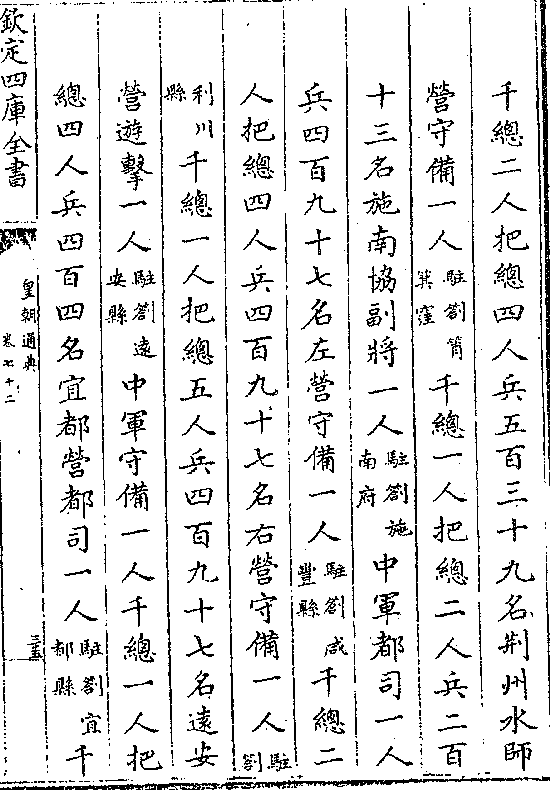 千總二人把總四人兵五百三十九名荆州水師
營守備一人駐劄筲箕窪千總一人把總二人兵二百
十三名施南協副將一人駐劄施南府中軍都司一人
兵四百九十七名左營守備一人駐劄咸豐縣千總二
人把總四人兵四百九十七名右營守備一人駐劄
利川縣千總一人把總五人兵四百九十七名遠安
營遊擊一人駐劄遠安縣中軍守備一人千總一人把
總四人兵四百四名宜都營都司一人駐劄宜都縣千
欽定四庫全書
皇朝通典
卷七十二
三五